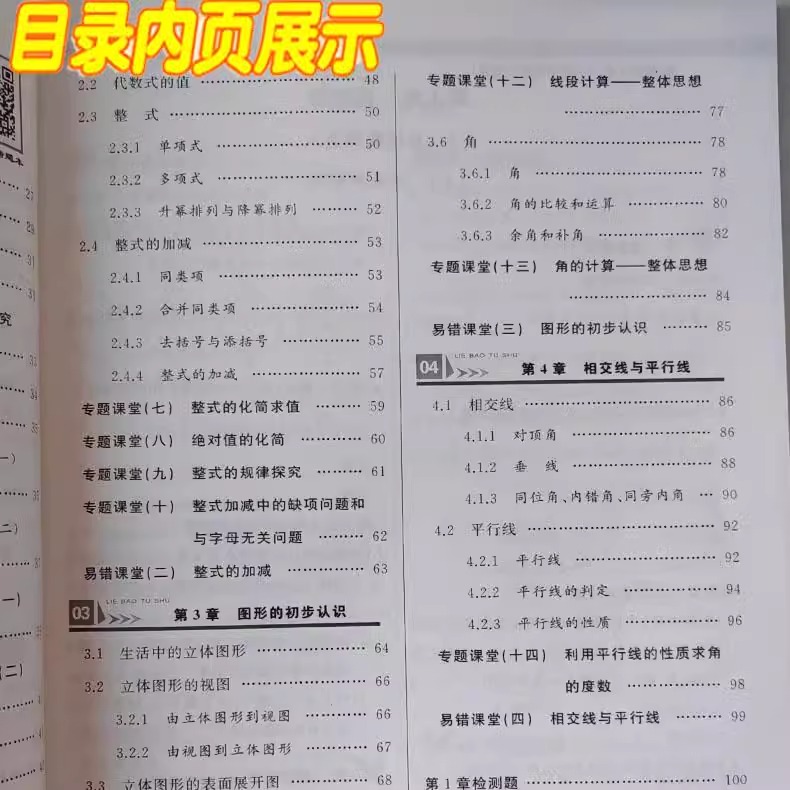 目录内页展示
27
29
31
31
究
33
35
一)
二)
37
一)
(二)
2.2 代数式的值 ………… 48
2.3 整 式 ………… 50
2.3.1 单项式 ………… 50
2.3.2 多项式 ………… 51
2.3.3 升幂排列与降幂排列 ……… 52
2.4 整式的加减 ………… 53
2.4.1 同类项 ………… 53
2.4.2 合并同类项 ………… 54
2.4.3 去括号与添括号 ………… 55
2.4.4 整式的加减 ………… 57
专题课堂(七) 整式的化简求值 ………… 59
专题课堂(八) 绝对值的化简 ………… 60
专题课堂(九) 整式的规律探究 ………… 61
专题课堂(十) 整式加减中的缺项问题和
与字母无关问题 ……… 62
易错课堂(二) 整式的加减 ………… 63
LIE BAO TU SHU
03 第3章 图形的初步认识
3.1 生活中的立体图形 ………… 64
3.2 立体图形的视图 ………… 66
3.2.1 由立体图形到视图 ………… 66
3.2.2 由视图到立体图形 ………… 67
3.3 立体图形的表面展开图 ……… 68
专题课堂(十二) 线段计算——整体思想
………… 77
3.6 角 ………… 78
3.6.1 角 ………… 78
3.6.2 角的比较和运算 ………… 80
3.6.3 余角和补角 ………… 82
专题课堂(十三) 角的计算——整体思想
………… 84
易错课堂(三) 图形的初步认识 ……… 85
LIE BAO TU SHU
04 第4章 相交线与平行线
4.1 相交线 ………… 86
4.1.1 对顶角 ………… 86
4.1.2 垂 线 ………… 88
4.1.3 同位角、内错角、同旁内角 … 90
4.2 平行线 ………… 92
4.2.1 平行线 ………… 92
4.2.2 平行线的判定 ………… 94
4.2.3 平行线的性质 ………… 96
专题课堂(十四) 利用平行线的性质求角
的度数 ………… 98
易错课堂(四) 相交线与平行线 ……… 99
第1章检测题 ………… 100